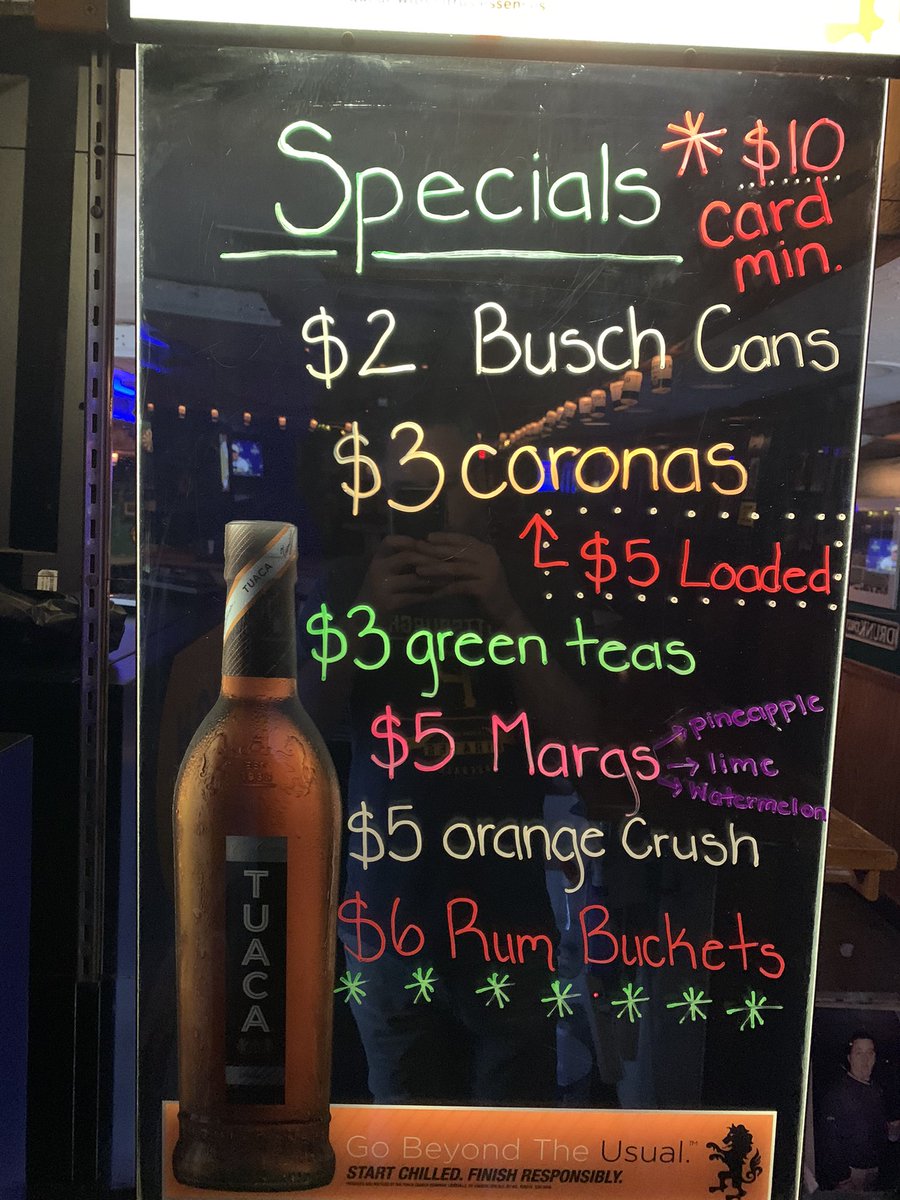 Specials
* $10
card
min.
$2 Busch Cans
$3 coronas
$5 Loaded
$3 green teas
$5 Margs
pineapple
lime
Watermelon
$5 orange Crush
$6 Rum Buckets
TUACA
TUACA
Go Beyond The Usual.™
START CHILLED. FINISH RESPONSIBLY.